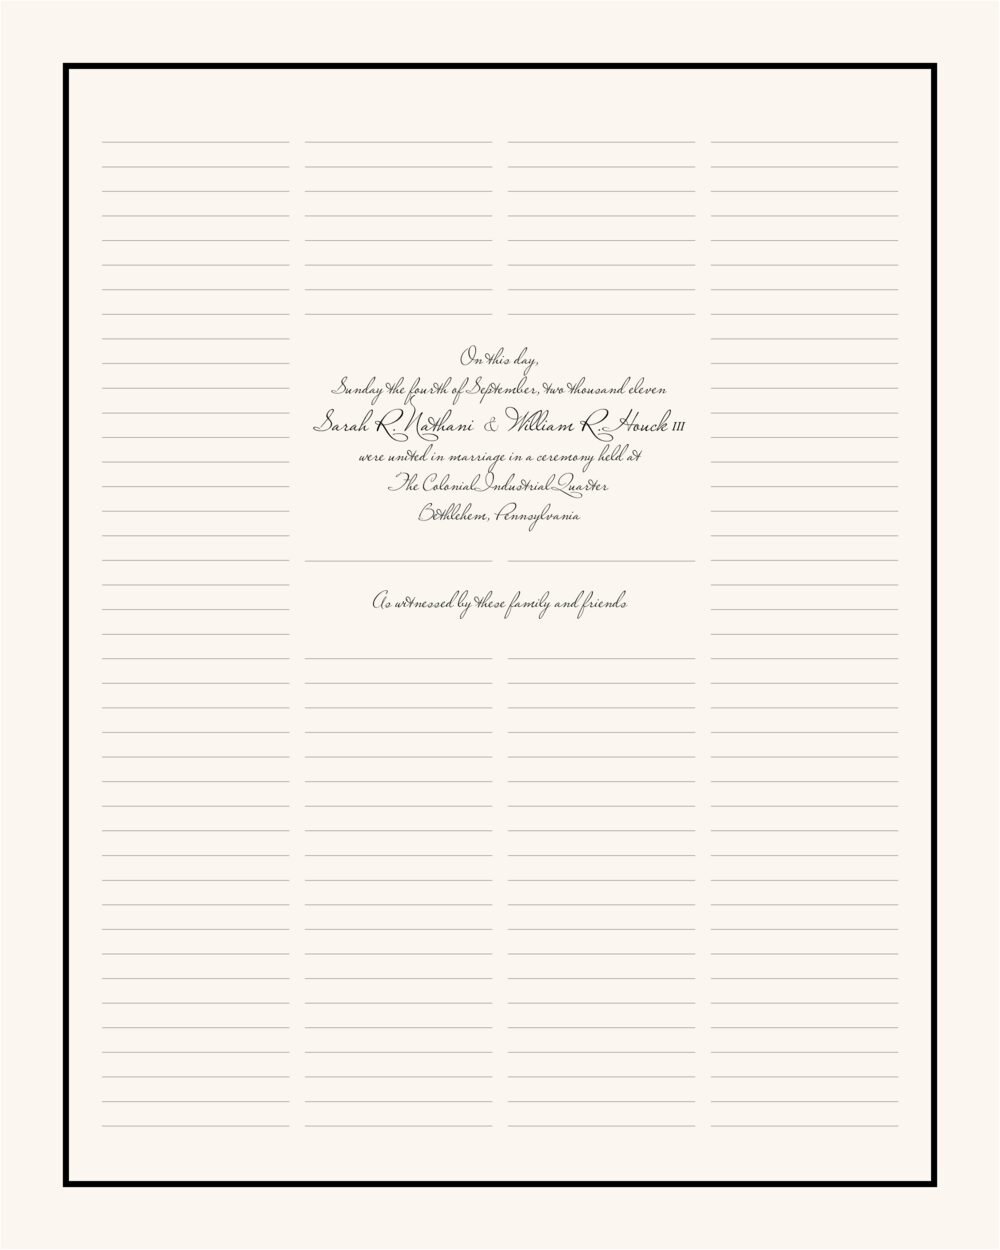 On this day,
Sunday the fourth of September, two thousand eleven
Sarah R. Nathani & William R. Houck III
were united in marriage in a ceremony held at
The Colonial Industrial Quarter
Bethlehem, Pennsylvania
As witnessed by these family and friends